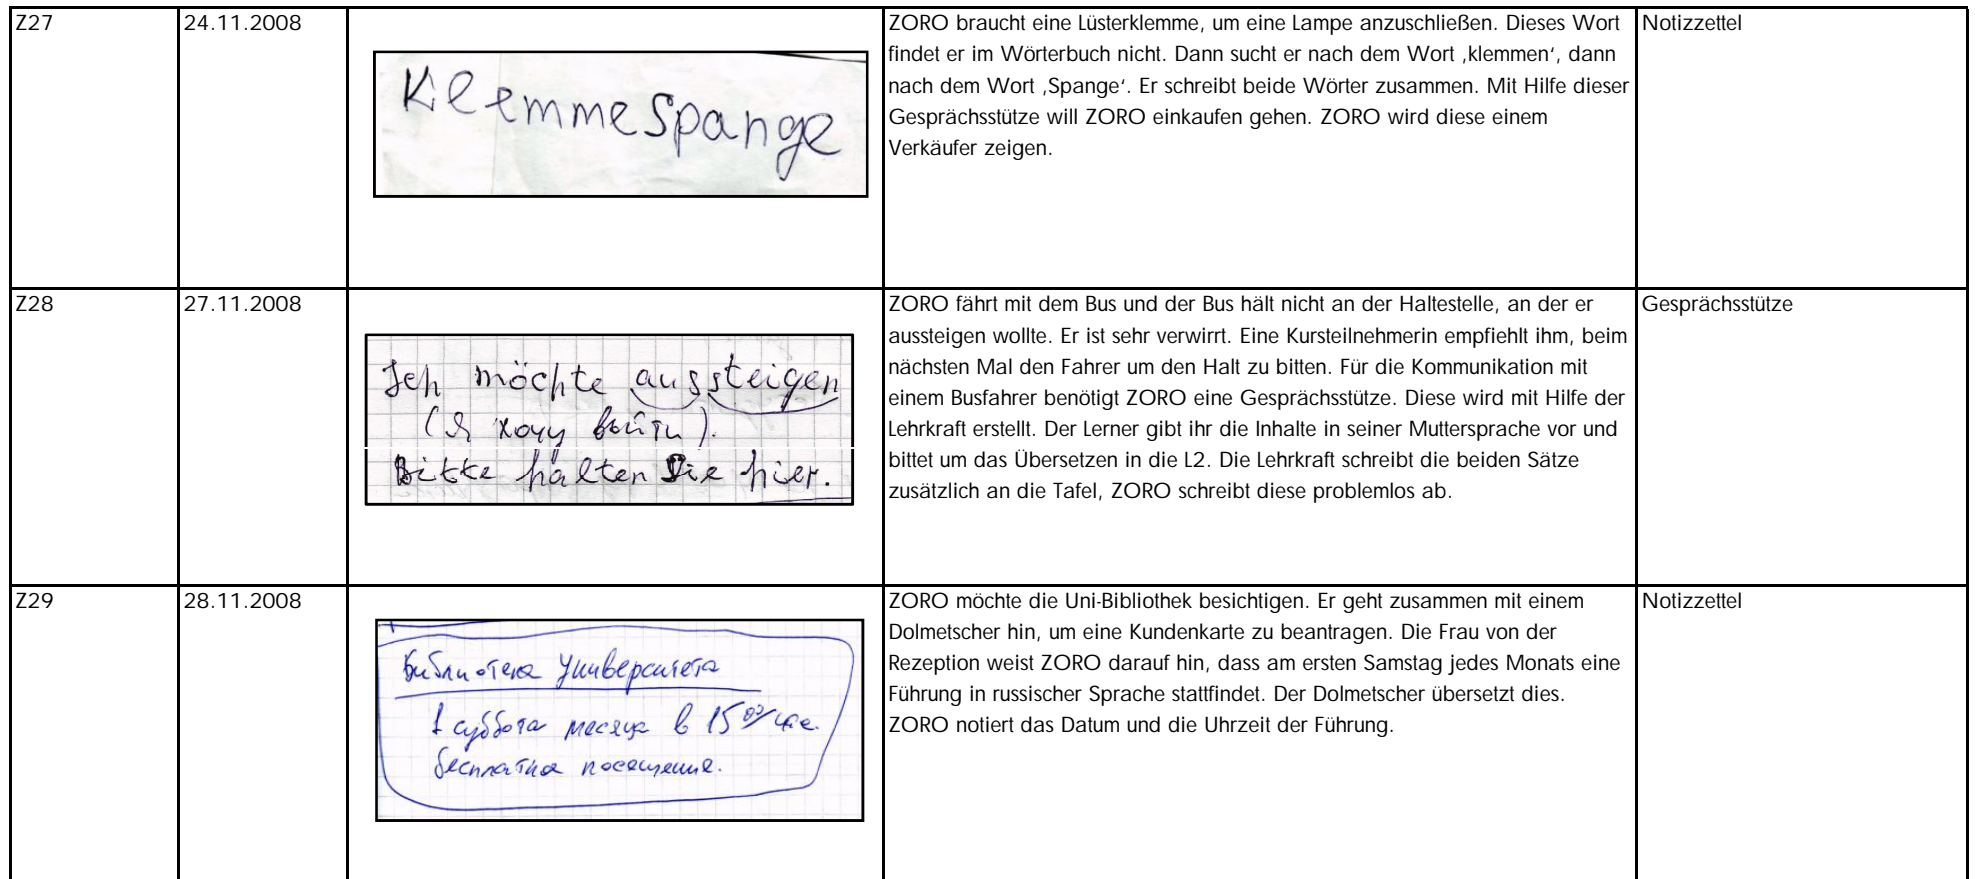 Z27
24.11.2008
Klemmespange
ZORO braucht eine Lüsterklemme, um eine Lampe anzuschließen. Dieses Wort
findet er im Wörterbuch nicht. Dann sucht er nach dem Wort ‚klemmen‘, dann
nach dem Wort ‚Spange‘. Er schreibt beide Wörter zusammen. Mit Hilfe dieser
Gesprächsstütze will ZORO einkaufen gehen. ZORO wird diese einem
Verkäufer zeigen.
Notizzettel
Z28
27.11.2008
Ich möchte aussteigen
(Я хочу выйти).
Bitte halten Sie hier.
ZORO fährt mit dem Bus und der Bus hält nicht an der Haltestelle, an der er
aussteigen wollte. Er ist sehr verwirrt. Eine Kursteilnehmerin empfiehlt ihm, beim
nächsten Mal den Fahrer um den Halt zu bitten. Für die Kommunikation mit
einem Busfahrer benötigt ZORO eine Gesprächsstütze. Diese wird mit Hilfe der
Lehrkraft erstellt. Der Lerner gibt ihr die Inhalte in seiner Muttersprache vor und
bittet um das Übersetzen in die L2. Die Lehrkraft schreibt die beiden Sätze
zusätzlich an die Tafel, ZORO schreibt diese problemlos ab.
Gesprächsstütze
Z29
28.11.2008
Библиотека Университета
1 суббота месяца в 15 00
бесплатна посещение.
ZORO möchte die Uni-Bibliothek besichtigen. Er geht zusammen mit einem
Dolmetscher hin, um eine Kundenkarte zu beantragen. Die Frau von der
Rezeption weist ZORO darauf hin, dass am ersten Samstag jedes Monats eine
Führung in russischer Sprache stattfindet. Der Dolmetscher übersetzt dies.
ZORO notiert das Datum und die Uhrzeit der Führung.
Notizzettel